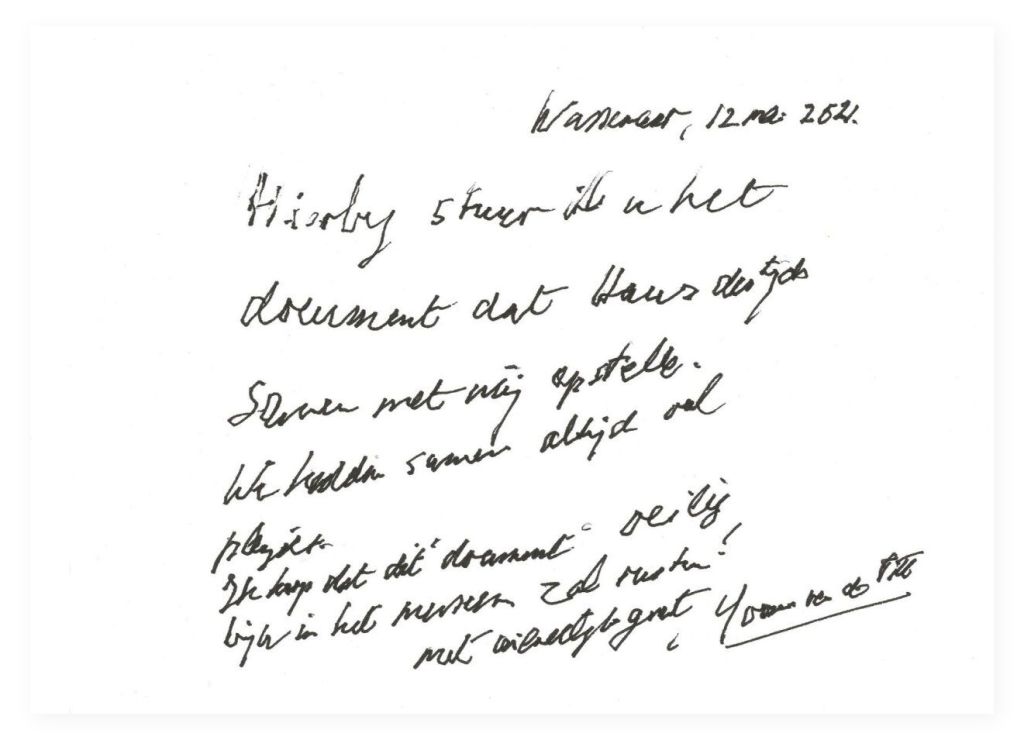 Wassenaar, 12 mei 2021.
Hierby stuur ik u het
document dat Hans destijds
Samen met mij opstelde.
We hadden samen altijd veel
plezier.
Ik hoop dat dit "document" veilig
bij u in het museum zal rusten!
met vriendelijke groet, Yvonne van der